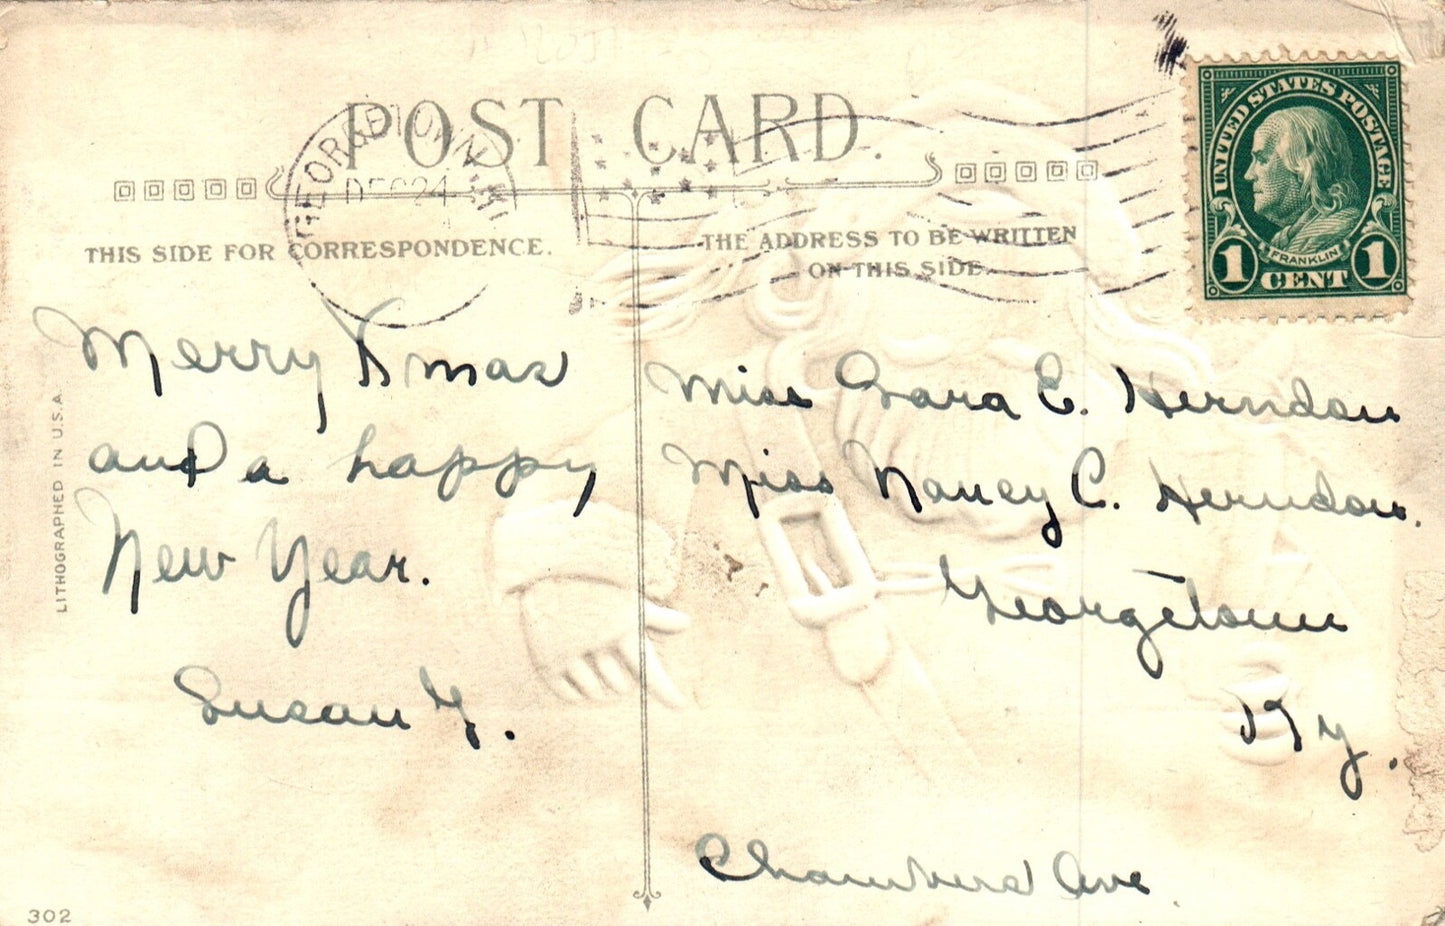 POST CARD.
GEORGETOWN KY.
DEC 24
UNITED STATES POSTAGE
FRANKLIN
1 CENT 1
THIS SIDE FOR CORRESPONDENCE.
THE ADDRESS TO BE WRITTEN
ON THIS SIDE.
Merry Xmas
and a happy
New Year.
Susan Y.
Miss Sara E. Herndon
Miss Nancy C. Herndon.
Georgetown
Ky.
Chambers Ave.
LITHOGRAPHED IN U.S.A.
302